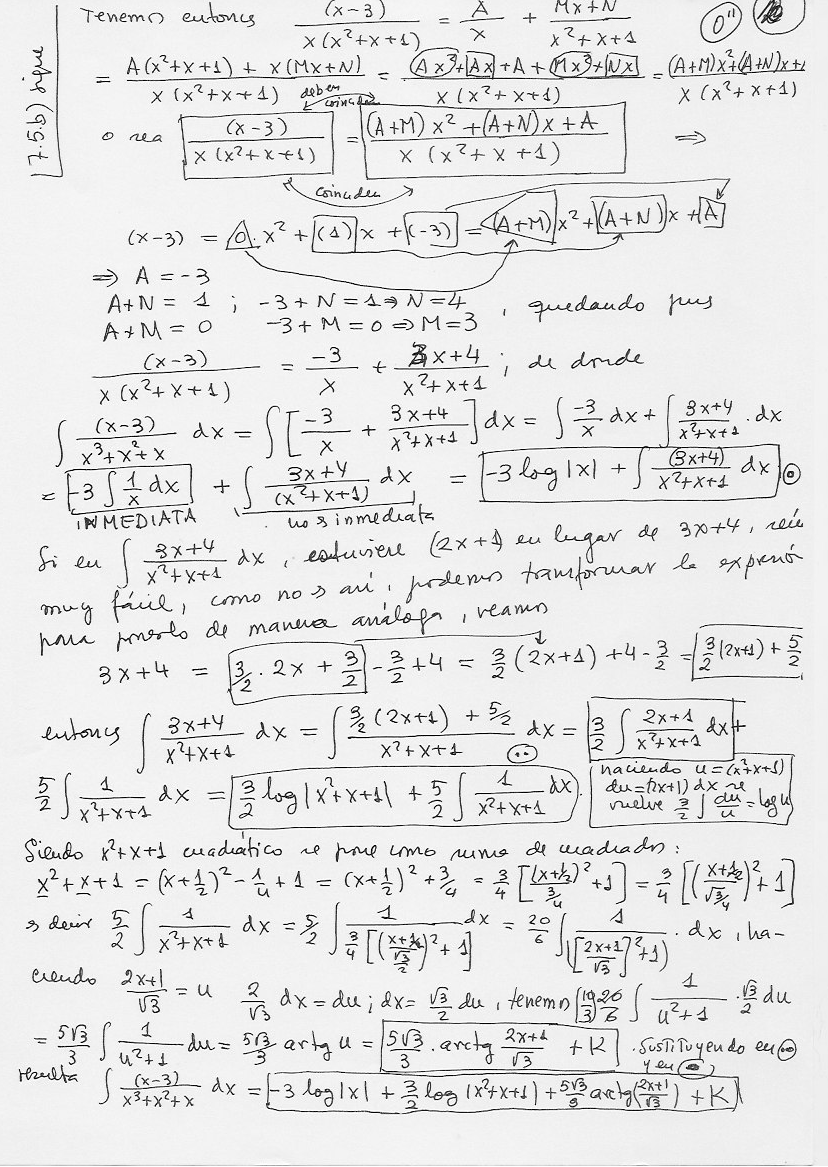 7.5.b) sigue
Tenemos entonces (x-3)/(x(x²+x+1)) = A/x + (Mx+N)/(x²+x+1) 0"
= (A(x²+x+1) + x(Mx+N))/(x(x²+x+1)) = (Ax²+Ax+A+Mx²+Nx)/(x(x²+x+1)) = ((A+M)x²+(A+N)x+A)/(x(x²+x+1))
deben coinciden
o sea (x-3)/(x(x²+x+1)) = ((A+M)x²+(A+N)x+A)/(x(x²+x+1)) ⇒
coinciden
(x-3) = 0·x² + (1)x + (-3) = (A+M)x² + (A+N)x + A
⇒ A = -3
A+N = 1 ; -3+N = 1 ⇒ N = 4 , quedando pues
A+M = 0 -3+M = 0 ⇒ M = 3
(x-3)/(x(x²+x+1)) = -3/x + (3x+4)/(x²+x+1) ; de donde
∫ (x-3)/(x³+x²+x) dx = ∫ [-3/x + (3x+4)/(x²+x+1)] dx = ∫ -3/x dx + ∫ (3x+4)/(x²+x+1) · dx
= -3 ∫ 1/x dx + ∫ (3x+4)/(x²+x+1) dx = -3 log|x| + ∫ (3x+4)/(x²+x+1) dx
INMEDIATA no es inmediata
Si en ∫ (3x+4)/(x²+x+1) dx , estuviere (2x+1) en lugar de 3x+4, sería
muy fácil, como no es así, podemos transformar la expresión
para ponerlo de manera análoga, veamos
3x+4 = 3/2 · 2x + 3/2 - 3/2 + 4 = 3/2 (2x+1) + 4 - 3/2 = 3/2 (2x+1) + 5/2
entonces ∫ (3x+4)/(x²+x+1) dx = ∫ (3/2 (2x+1) + 5/2)/(x²+x+1) dx = 3/2 ∫ (2x+1)/(x²+x+1) dx +
5/2 ∫ 1/(x²+x+1) dx = 3/2 log|x²+x+1| + 5/2 ∫ 1/(x²+x+1) dx
haciendo u = (x²+x+1)
du = (2x+1) dx se
vuelve 3/2 ∫ du/u = log u
Siendo x²+x+1 cuadrático se pone como suma de cuadrados:
x²+x+1 = (x+1/2)² - 1/4 + 1 = (x+1/2)² + 3/4 = 3/4 [(x+1/2)²/(3/4) + 1] = 3/4 [((x+1/2)/√3/4)² + 1]
es decir 5/2 ∫ 1/(x²+x+1) dx = 5/2 ∫ 1/(3/4 [((x+1/2)/(√3/2))² + 1]) dx = 20/6 ∫ 1/([(2x+1)/√3]² + 1) · dx , ha-
ciendo (2x+1)/√3 = u 2/√3 dx = du ; dx = √3/2 du , tenemos 20/6 ∫ 1/(u²+1) · √3/2 du
= 5√3/3 ∫ 1/(u²+1) du = 5√3/3 artg u = 5√3/3 · arctg (2x+1)/√3 + K . Sustituyendo en
y en
resulta ∫ (x-3)/(x³+x²+x) dx = -3 log|x| + 3/2 log|x²+x+1| + 5√3/3 arctg((2x+1)/√3) + K